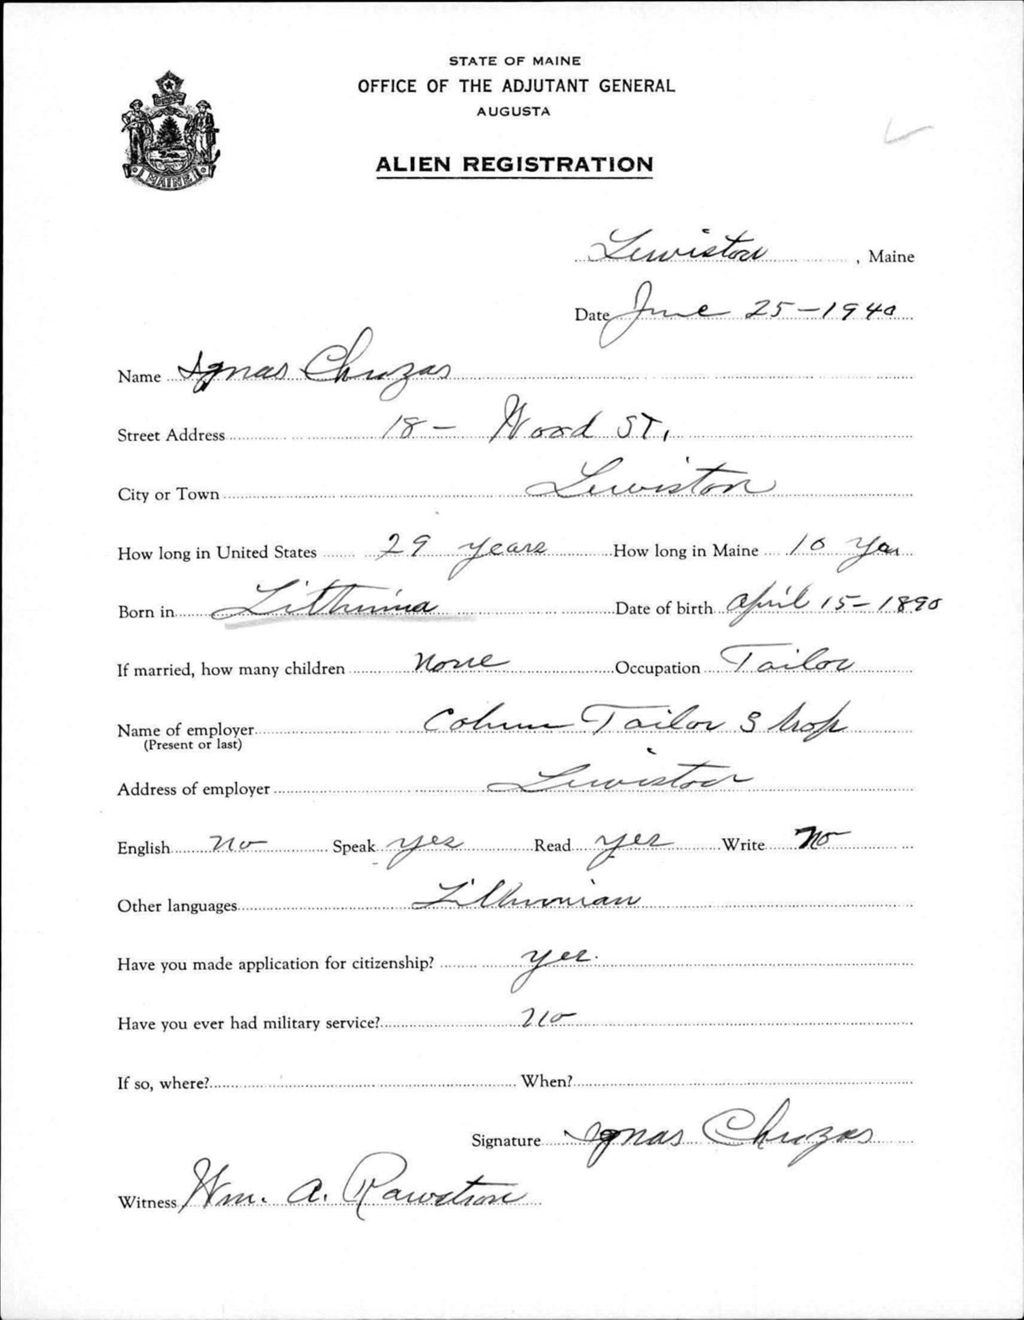 STATE OF MAINE
OFFICE OF THE ADJUTANT GENERAL
AUGUSTA
ALIEN REGISTRATION
MAINE
Lewiston, Maine
Date June 25-1940
Name Ignas Chuzas
Street Address 18- Wood St.
City or Town Lewiston
How long in United States 29 years How long in Maine 10 Years
Born in Lithunina Date of birth April 15-1890
If married, how many children None Occupation Tailor
Name of employer Tailor Shop
(Present or last)
Address of employer Lewiston
English No Speak yes Read yes Write No
Other languages Lithunian
Have you made application for citizenship? yes.
Have you ever had military service? No
If so, where? When?
Signature Ignas Chuzas
Witness Wm. A. Rawstron